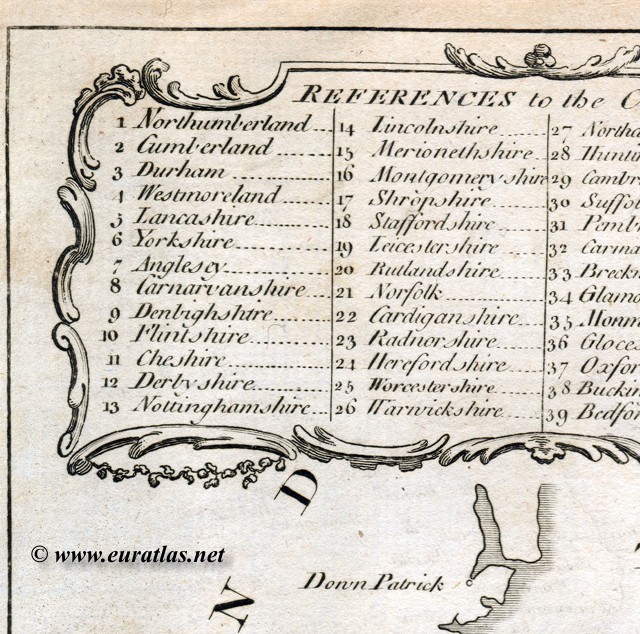 REFERENCES to the C
1 Northumberland
2 Cumberland
3 Durham
4 Westmoreland
5 Lancashire
6 Yorkshire
7 Anglesey
8 Carnarvanshire
9 Denbighshire
10 Flintshire
11 Cheshire
12 Derbyshire
13 Nottinghamshire
14 Lincolnshire
15 Merionethshire
16 Montgomeryshire
17 Shropshire
18 Staffordshire
19 Leicestershire
20 Rutlandshire
21 Norfolk
22 Cardiganshire
23 Radnorshire
24 Herefordshire
25 Worcestershire
26 Warwickshire
27 Northa
28 Hunti
29 Cambr
30 Suffol
31 Pembr
32 Carma
33 Breckn
34 Glamo
35 Monm
36 Gloces
37 Oxfor
38 Buckin
39 Bedfor
D
N
Down Patrick
© www.euratlas.net